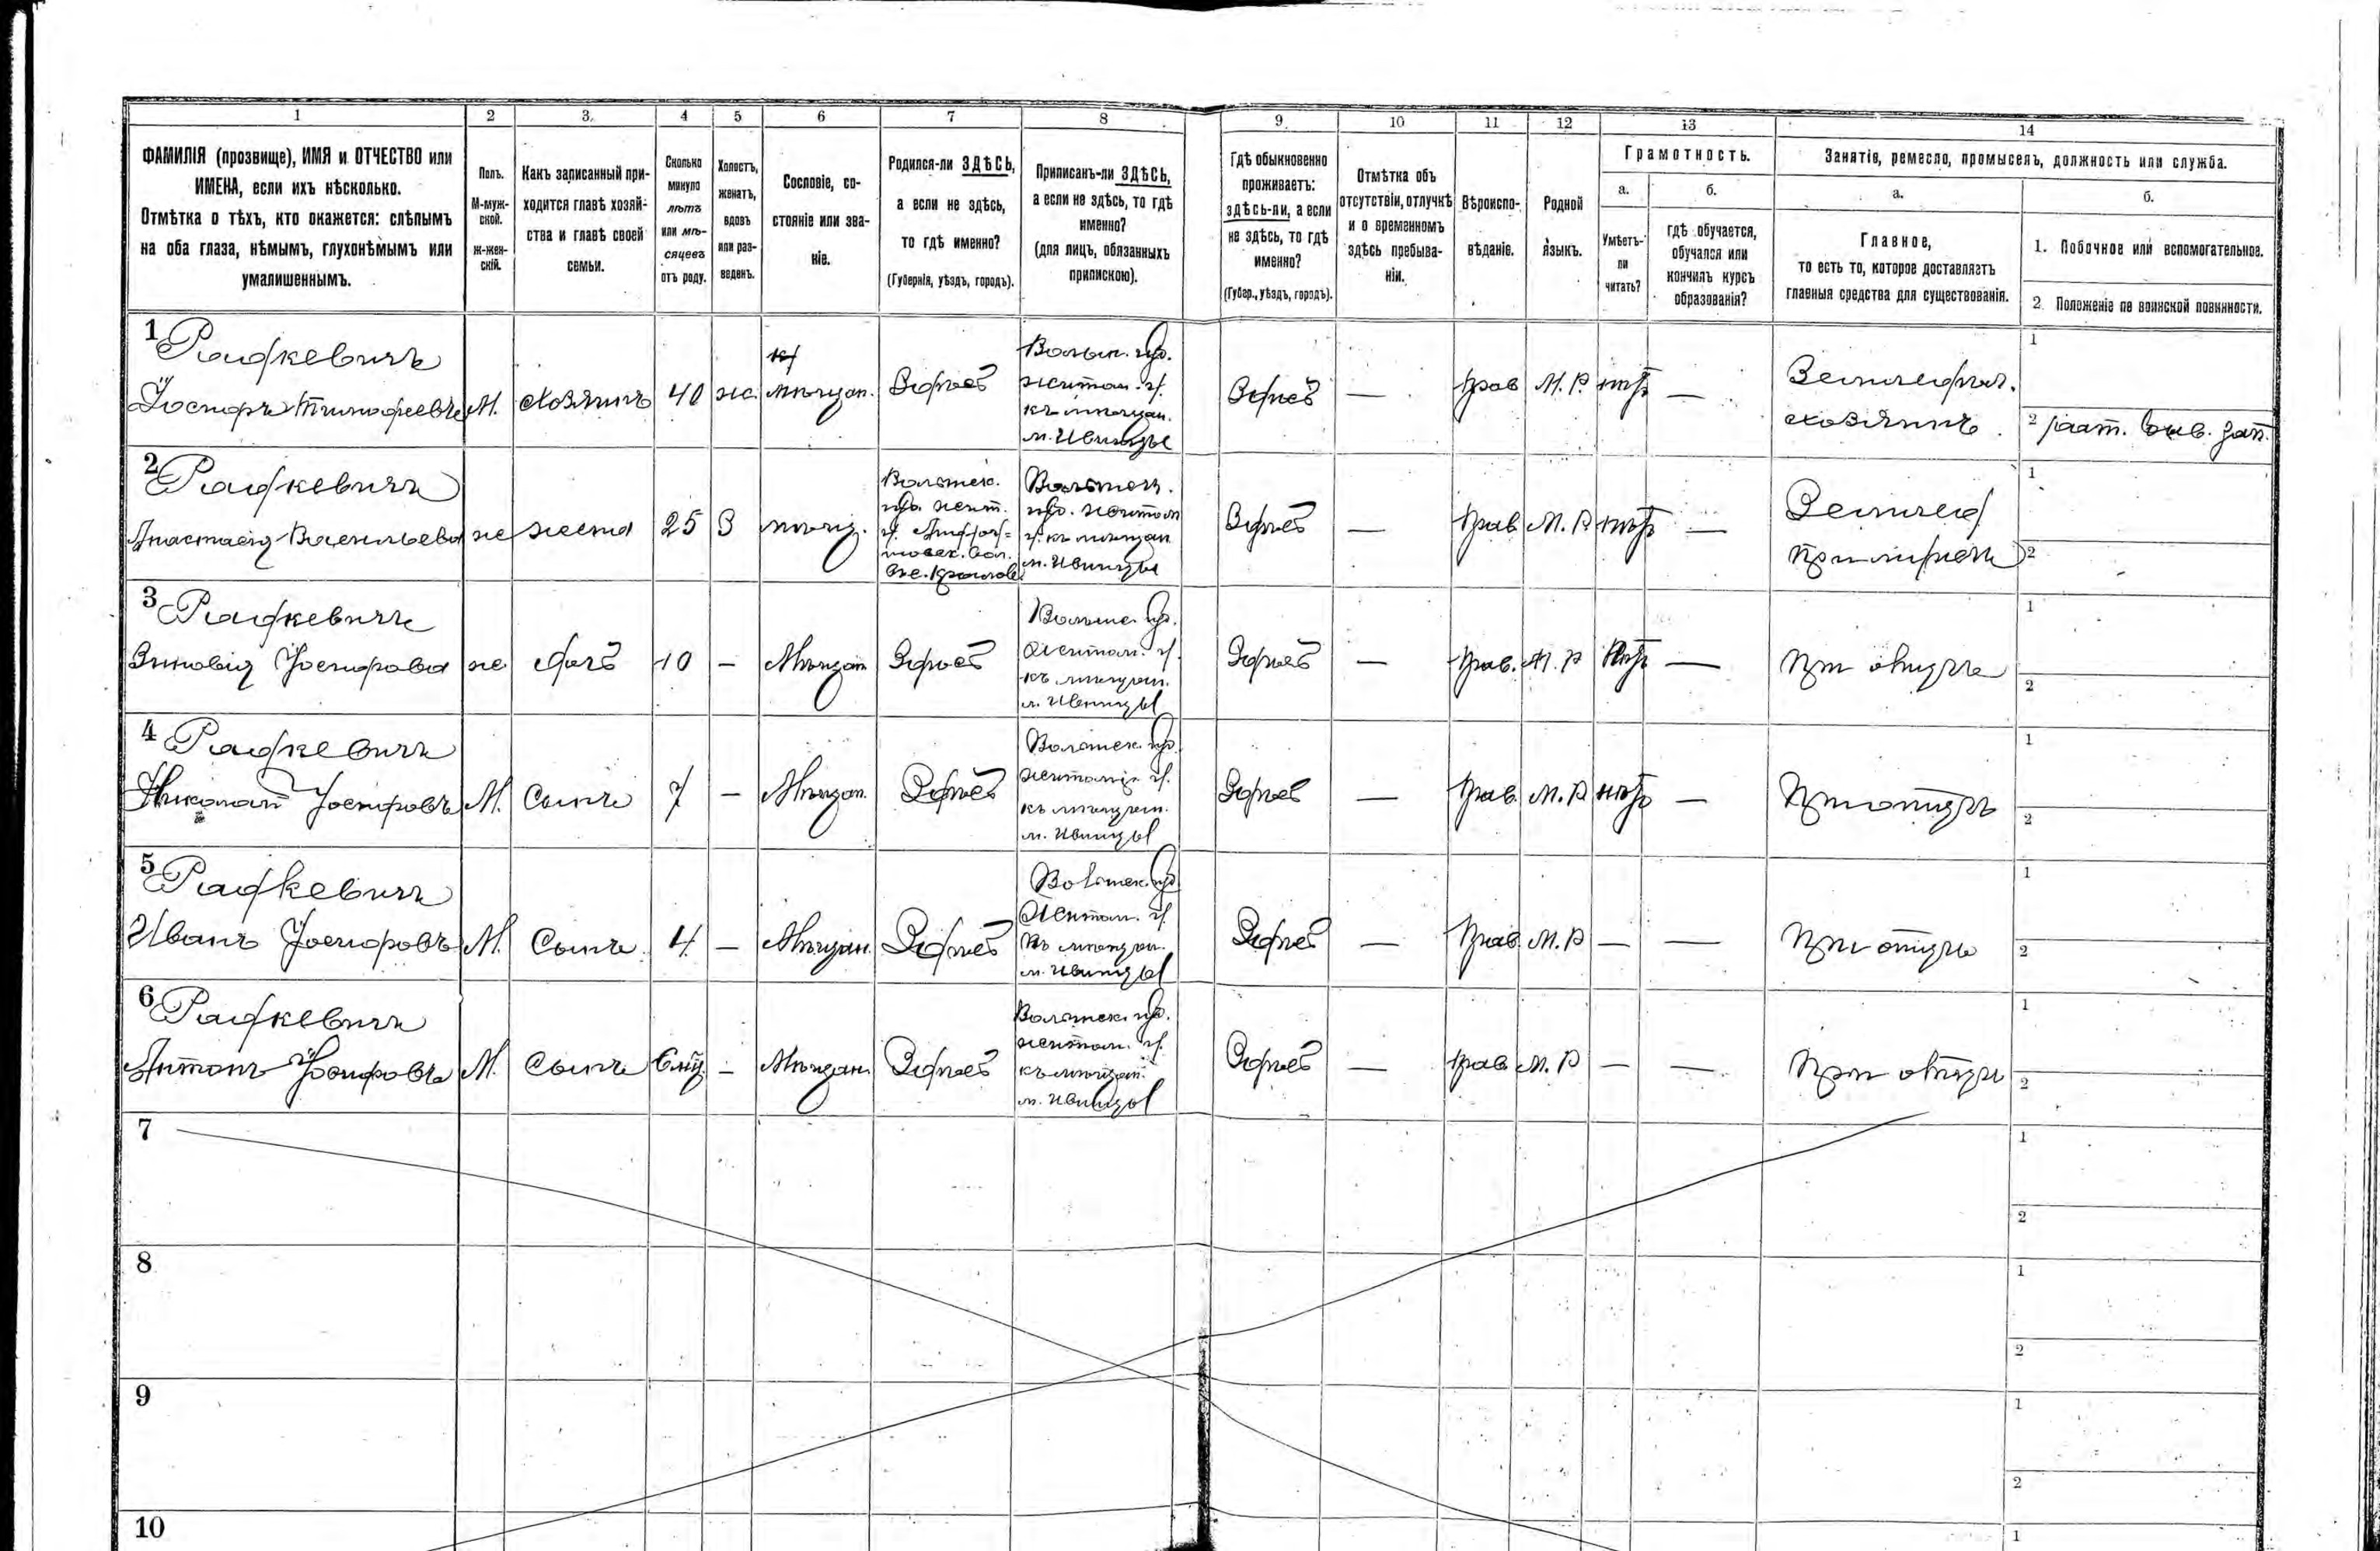 1
2
3.
4
5
6
7
8
9.
10
11
12
13
14
ФАМИЛІЯ (прозвище), ИМЯ и ОТЧЕСТВО или
ИМЕНА, если ихъ нѣсколько.
Отмѣтка о тѣхъ, кто окажется: слѣпымъ
на оба глаза, нѣмымъ, глухонѣмымъ или
умалишеннымъ.
Полъ.
М-муж-
ской.
ж-жен-
скій.
Какъ записанный при-
ходится главѣ хозяй-
ства и главѣ своей
семьи.
Сколько
минуло
лѣтъ
или мѣ-
сяцевъ
отъ роду.
Холостъ,
женатъ,
вдовъ
или раз-
веденъ.
Сословіе, со-
стояніе или зва-
ніе.
Родился-ли ЗДѢСЬ,
а если не здѣсь,
то гдѣ именно?
(Губернія, уѣздъ, городъ).
Приписанъ-ли ЗДѢСЬ,
а если не здѣсь, то гдѣ
именно?
(для лицъ, обязанныхъ
припискою).
Гдѣ обыкновенно
проживаетъ:
здѣсь-ли, а если
не здѣсь, то гдѣ
именно?
(Губер., уѣздъ, городъ).
Отмѣтка объ
отсутствіи, отлучкѣ
и о временномъ
здѣсь пребыва-
ніи.
Вѣроиспо-
вѣданіе.
Родной
языкъ.
Грамотность.
а.
Умѣетъ-
ли
читать?
б.
гдѣ обучается,
обучался или
кончилъ курсъ
образованія?
Занятіе, ремесло, промыселъ, должность или служба.
а.
Главное,
то есть то, которое доставляетъ
главныя средства для существованія.
б.
1. Побочное или вспомогательное.
2. Положеніе по воинской повинности.
1
Радкевичъ
Іосифъ Тимофеевъ
М.
Хозяинъ
40
ж.
мѣщан.
Здѣсь
Волын. губ.
житом. у.
къ мѣщан.
м. Ивницы
Здѣсь
—
Прав
М. Р
нѣтъ
—
Земледѣл.
хозяинъ
1
2
2
Радкевичъ
Анастасія Васильева
ж
жена
25
З
мѣщ.
Волынск.
губ. жит.
Волынск.
губ. житом
у. къ мѣщан
м. Ивницы
Здѣсь
—
Прав
М. Р
нѣтъ
—
Земледѣл
при мужѣ
1
2
3
Радкевичъ
Зиновія Іосифова
ж
дочь
10
—
Мѣщан
Здѣсь
Волынс. губ.
Житом. у.
къ мѣщан.
м. Ивницы
Здѣсь
—
Прав.
М. Р
нѣтъ
—
при отцѣ
1
2
4
Радкевичъ
Николай Іосифовъ
М.
Сынъ
7
—
Мѣщан.
Здѣсь
Волынск. губ.
житом. у.
къ мѣщан.
м. Ивницы
Здѣсь
—
Прав.
М. Р
нѣтъ
—
При отцѣ
1
2
5
Радкевичъ
Иванъ Іосифовъ
М.
Сынъ
4
—
Мѣщан.
Здѣсь
Волынск. губ
Житом. у.
къ мѣщан.
м. Ивницы
Здѣсь
—
Прав.
М. Р
—
—
При отцѣ
1
2
6
Радкевичъ
Антонъ Іосифовъ
М.
Сынъ
6 мѣц.
—
Мѣщан.
Здѣсь
Волынск. губ.
житом. у.
къ мѣщан.
м. Ивницы
Здѣсь
—
Прав
М. Р
—
—
При отцѣ
1
2
7
1
2
8
1
2
9
1
2
10
1